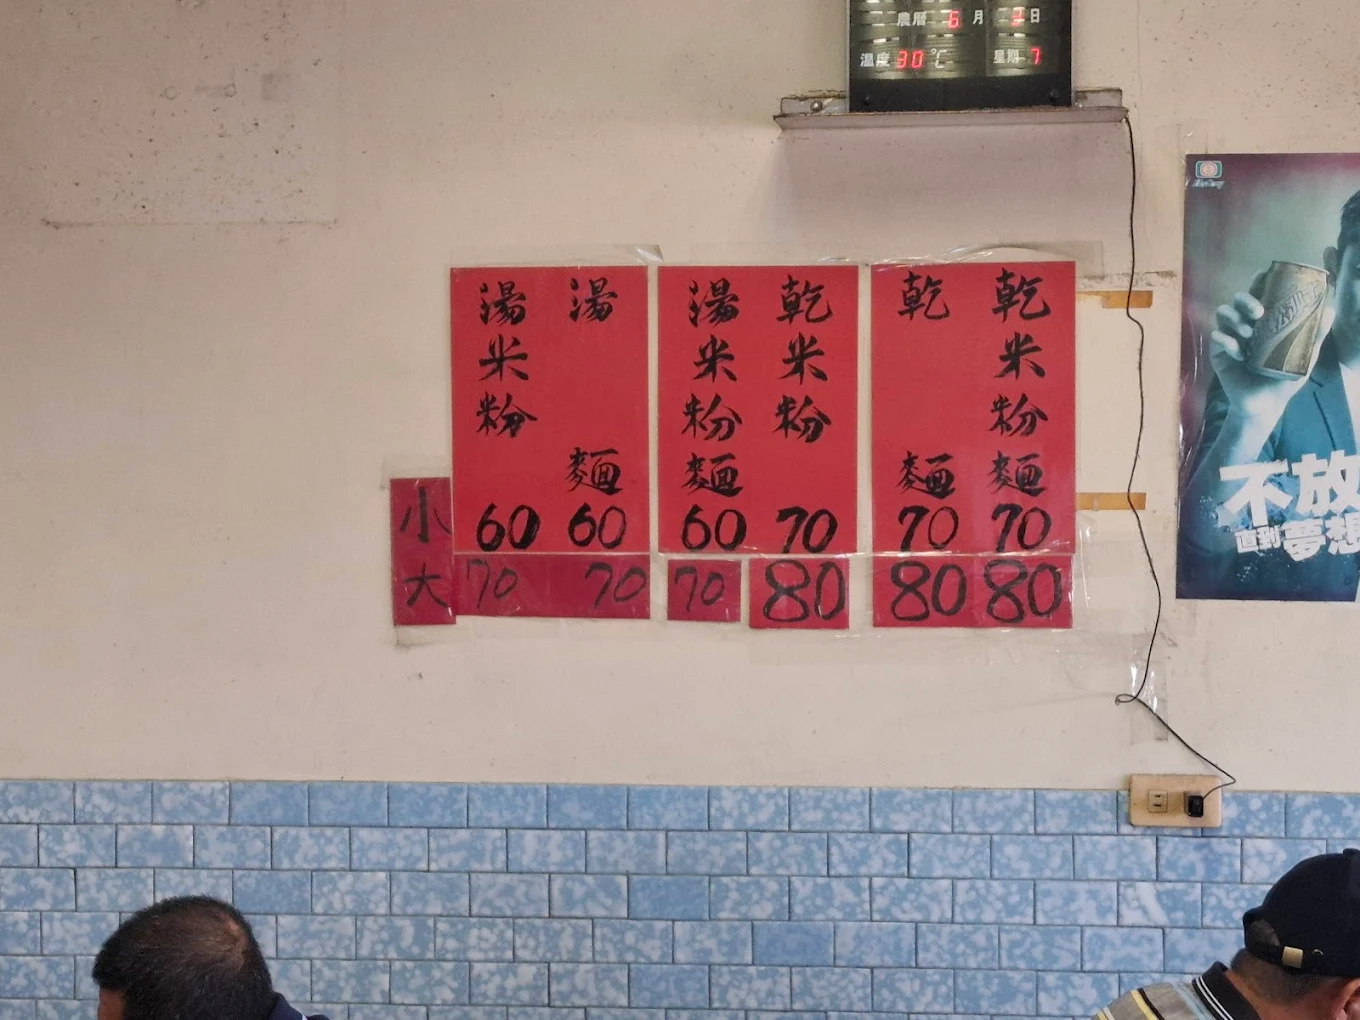 農曆 6 月 2 日
溫度 30 ℃ 星期 7
乾米粉麵 70 80
乾麵 70 80
乾米粉 70 80
湯米粉麵 60 70
湯麵 60 70
湯米粉 60 70
小
大
不放
直到夢想